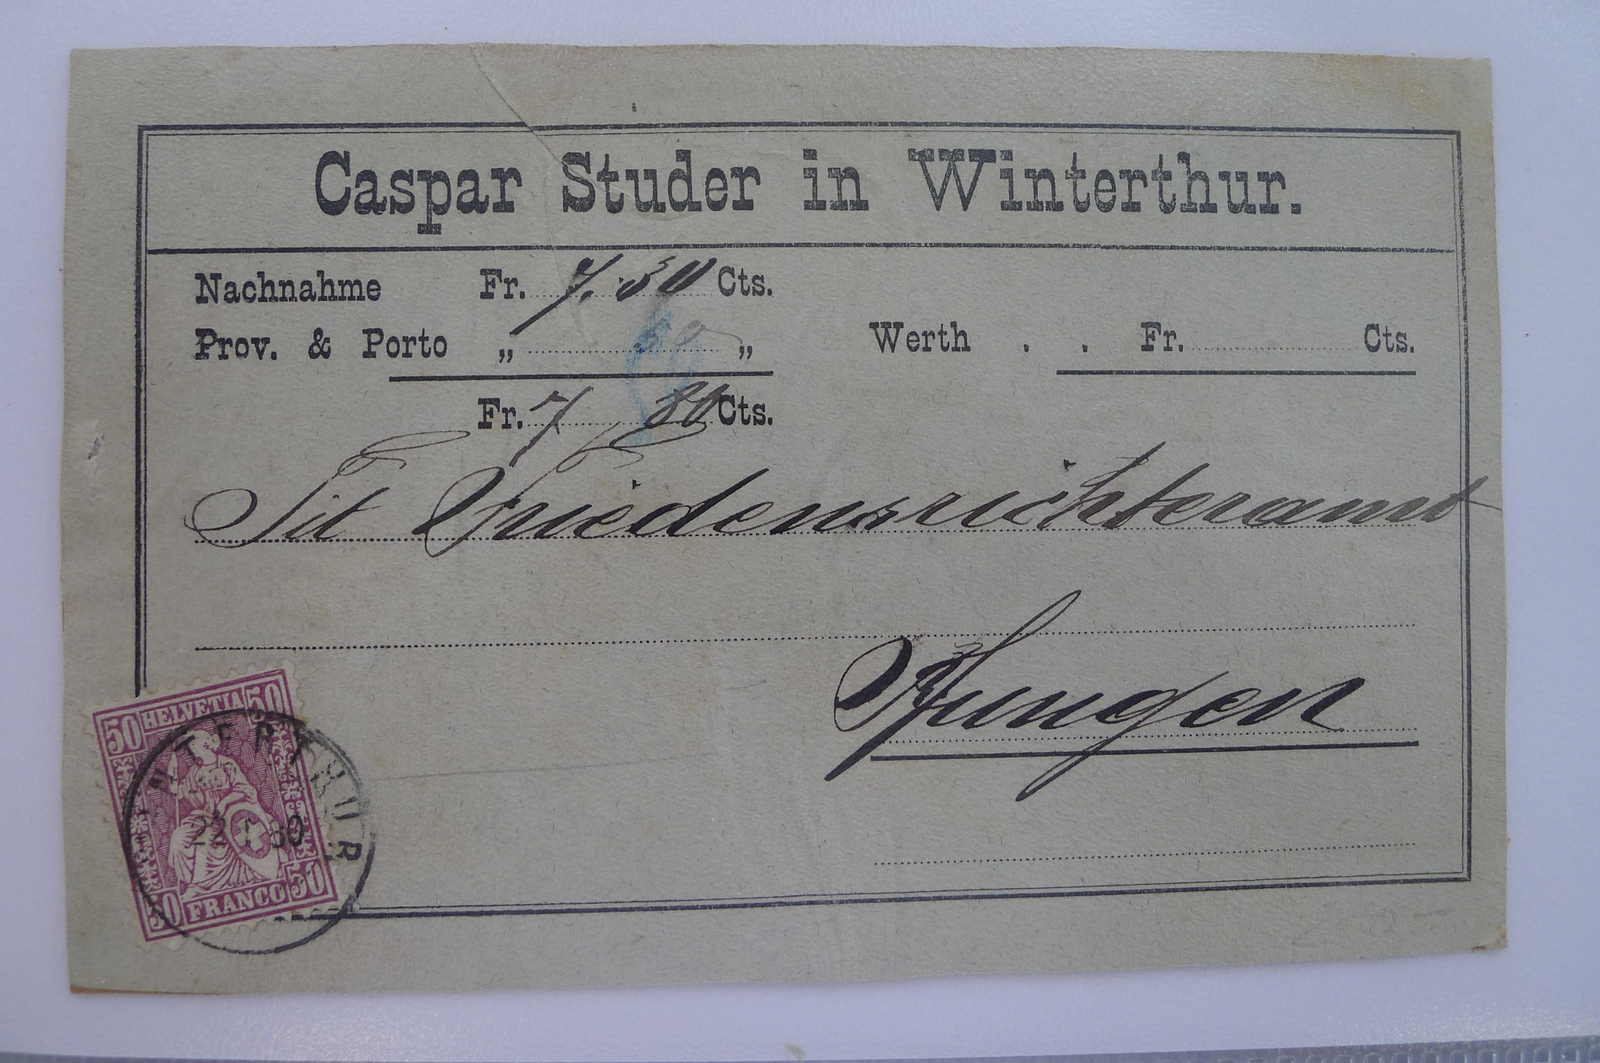 Caspar Studer in Winterthur.
Nachnahme Fr. 7.30 Cts.
Prov. & Porto „ 50 „ Werth . . Fr. Cts.
Fr. 7 80 Cts.
Tit Friedensrichteramt
50 HELVETIA 50
WINTERTHUR
50 FRANCO 50